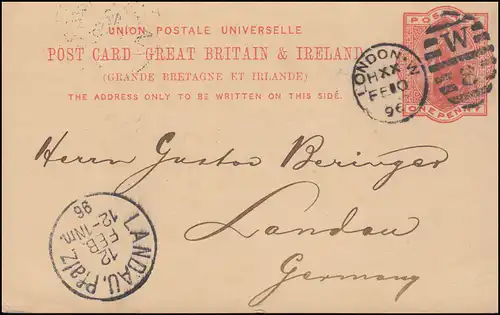 UNION POSTALE UNIVERSELLE
POST CARD - GREAT BRITAIN & IRELAND
(GRANDE BRETAGNE ET IRLANDE)
THE ADDRESS ONLY TO BE WRITTEN ON THIS SIDE.
POSTAGE
ONE PENNY
LONDON·W
HXX
FE10
96
W
Herrn Gustav Beringer
Landau
Germany
LANDAU.Pfalz
12
FEB
12-1Nm.
96